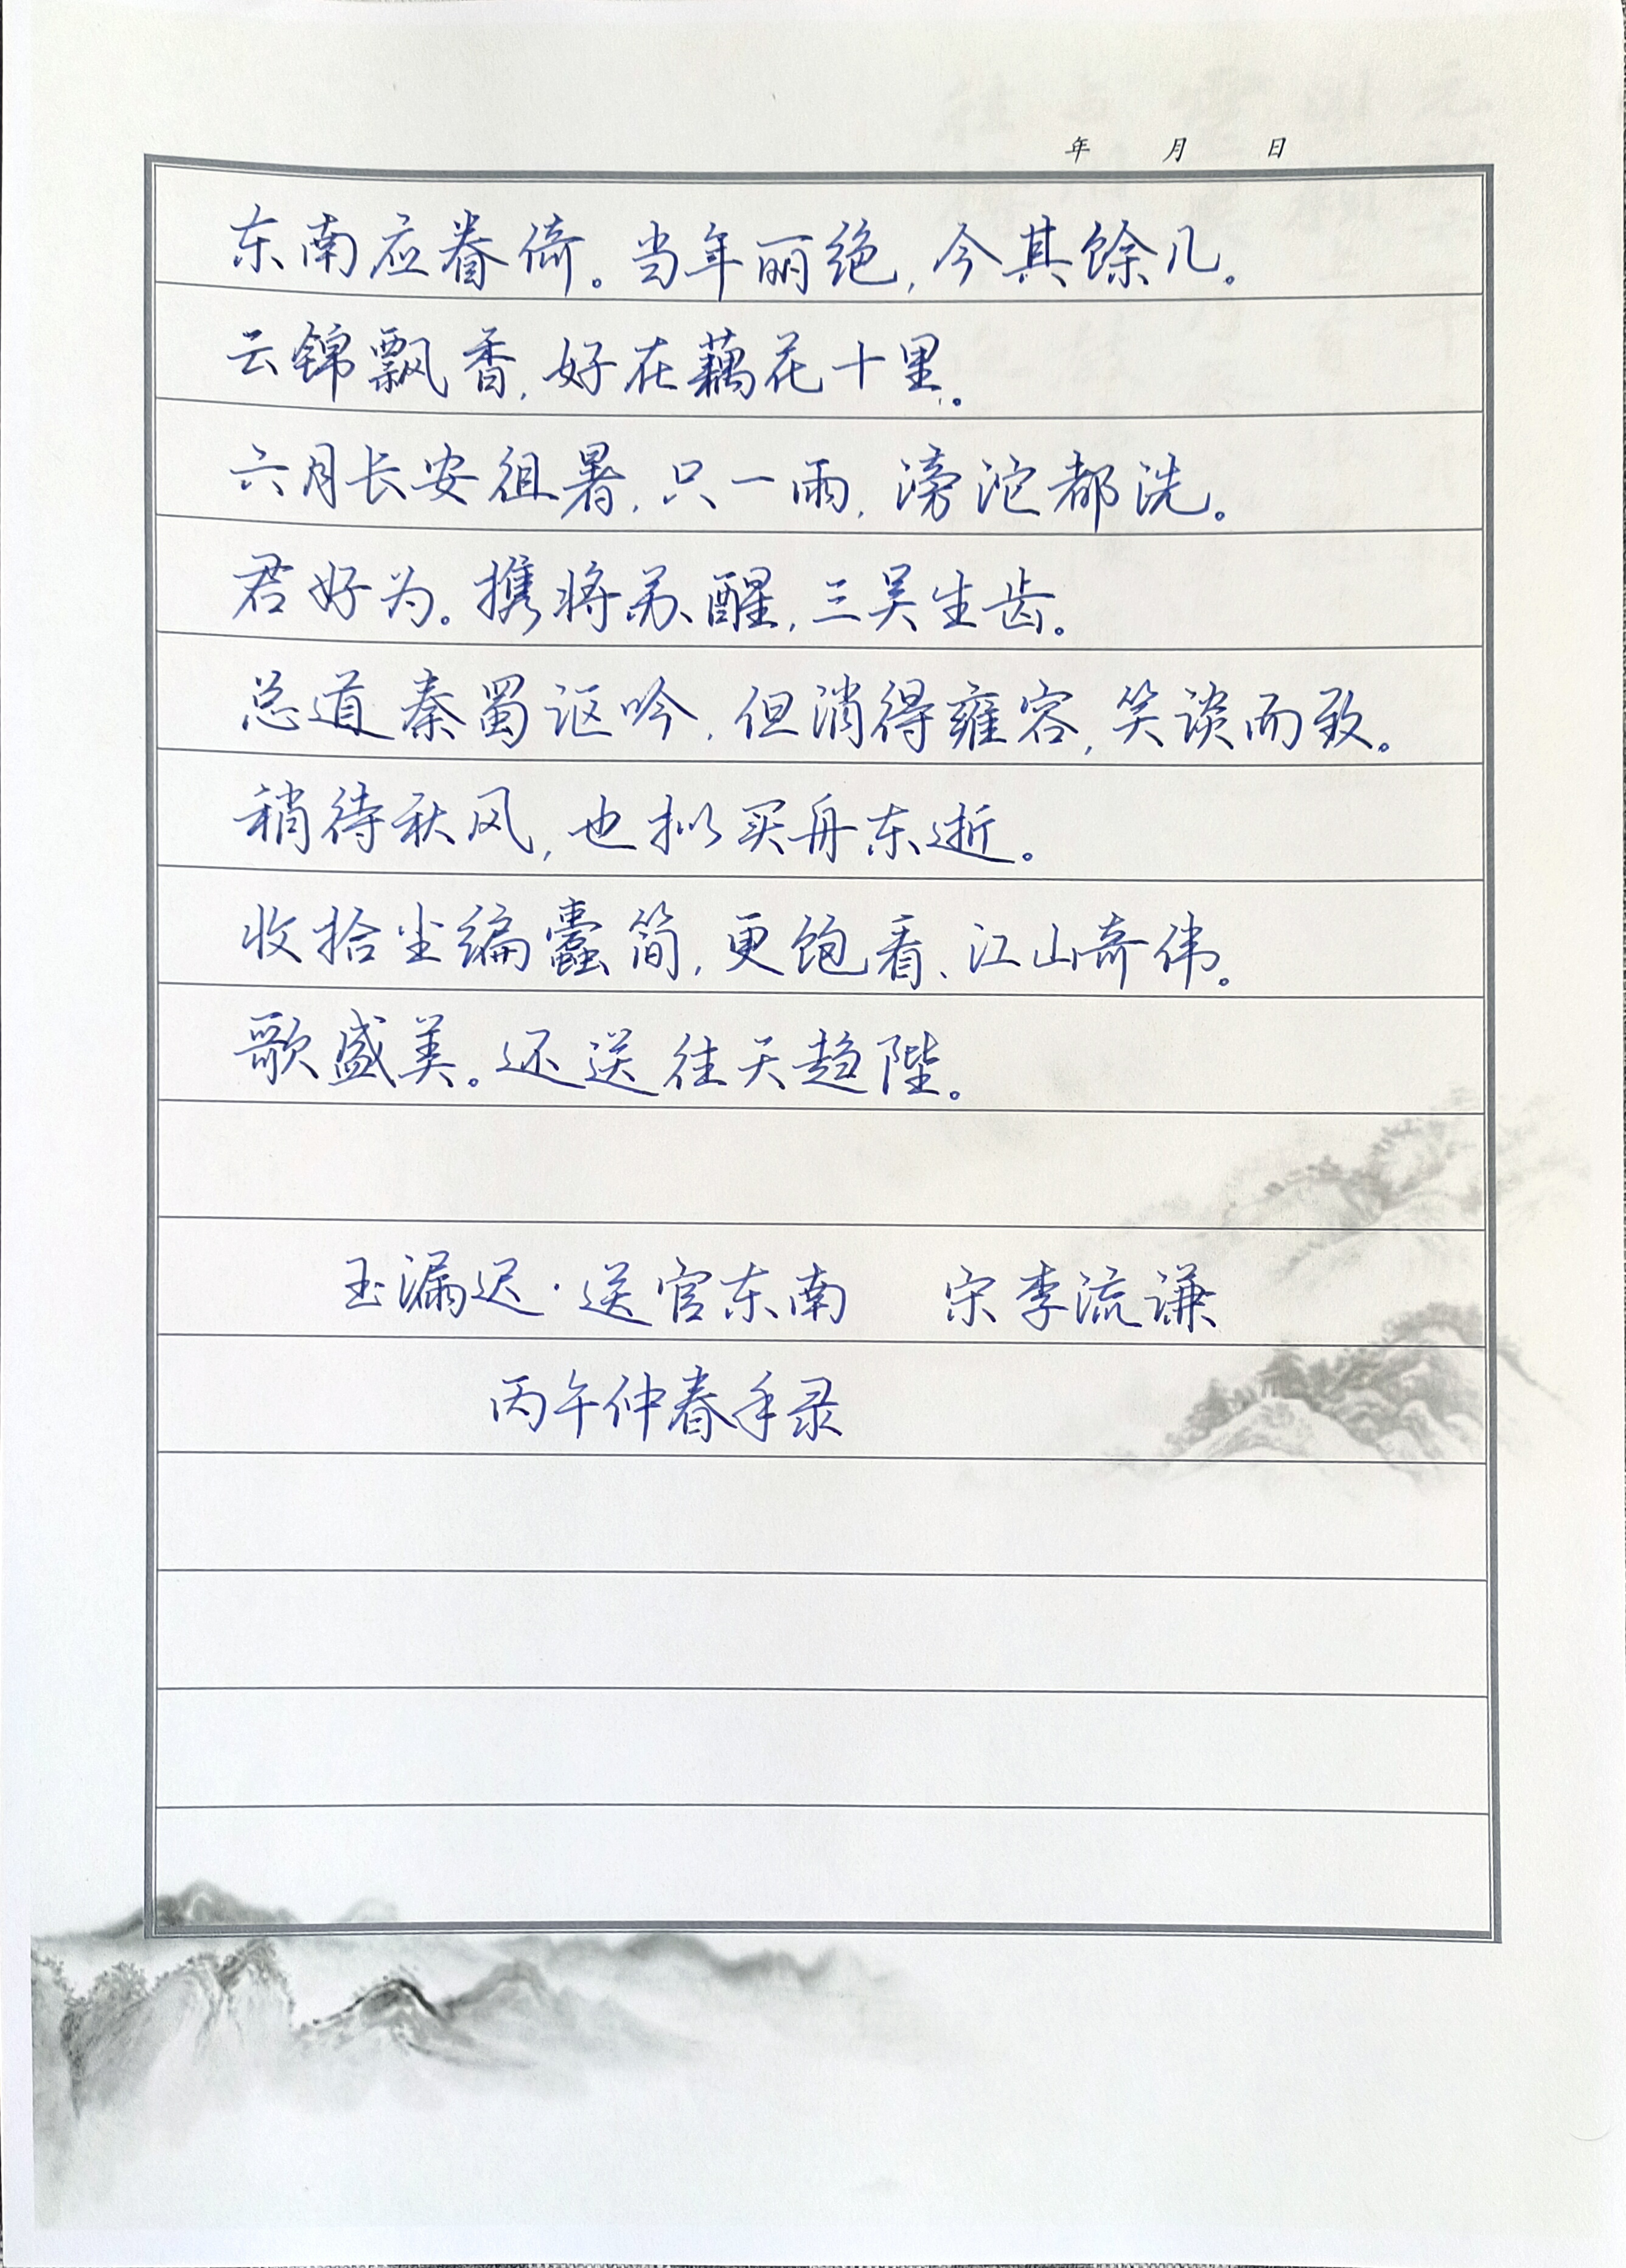 年 月 日
东南应眷倚。当年丽绝,今其馀几。
云锦飘香,好在藕花十里。
六月长安徂暑,只一雨,滂沱都洗。
君好为。携将苏醒,三吴生齿。
总道秦蜀讴吟,但消得雍容,笑谈而致。
稍待秋风,也拟买舟东逝。
收拾尘编蠹简,更饱看、江山奇伟。
歌盛美。还送往天趋陛。
玉漏迟·送官东南 宋李流谦
丙午仲春手录